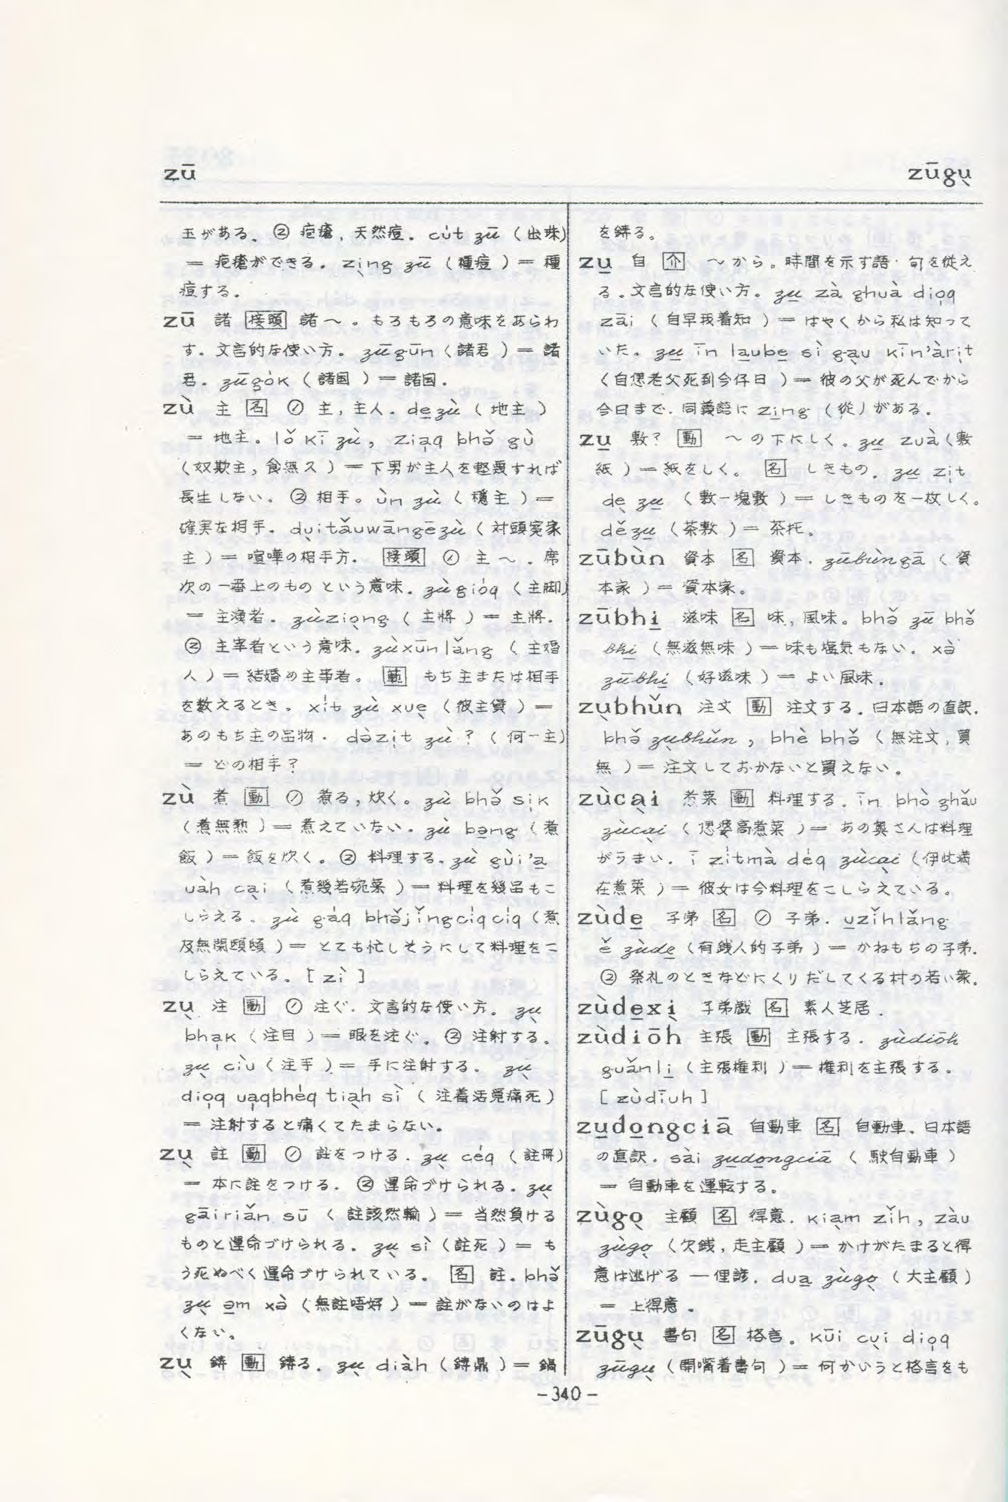 zū
zūgu̠
玉がある。② 疱瘡,天然痘。cu̍t zū (出珠)
= 疱瘡ができる。zi̠ng zū (種痘) = 種
痘する。
zū 諸 [接頭] 諸〜。もろもろの意味をあらわ
す。文言的な使い方。zūgūn (諸君) = 諸
君。zūgòk (諸国) = 諸国。
zù 主 [名] ① 主,主人。de̠zù (地主)
= 地主。lǒ kī zù, ziaq bhǒ gù
(奴欺主,食無久) = 下男が主人を軽蔑すれば
長生しない。② 相手。ùn zù (穏主) =
確実な相手。du̠itǎuwāngēzù (対頭冤家
主) = 喧嘩の相手方。[接頭] ① 主〜。席
次の一番上のものという意味。zùgio̍q (主脚)
= 主演者。zùzio̠ng (主将) = 主将。
② 主宰者という意味。zùxūnlǎng (主婚
人) = 結婚の主宰者。[量] もち主または相手
を数えるとき。xi̍t zù xue̠ (彼主貨) =
あのもち主の品物。dòzi̍t zù? (何一主)
= どの相手?
zù 煮 [動] ① 煮る,炊く。zù bhǒ si̍k
(煮無熟) = 煮えていない。zù be̠ng (煮
飯) = 飯を炊く。② 料理する。zù gùi'a̠
uàh ca̠i (煮幾若碗菜) = 料理を幾品もこ
しらえる。zù ga̍q bhǒjǐngciqciq (煮
及無閑頤頤) = とても忙しそうにして料理をこ
しらえている。[zì]
zu̠ 注 [動] ① 注ぐ。文言的な使い方。zu̠
bha̠k (注目) = 眼を注ぐ。② 注射する。
zu̠ ciù (注手) = 手に注射する。zu̠
dio̠q ua̠qbhe̍q tia̠h sì (注着活覓痛死)
= 注射すると痛くてたまらない。
zu̠ 註 [動] ① 註をつける。zu̠ céq (註冊)
= 本に註をつける。② 運命づけられる。zu̠
gāiriǎn sū (註該然輸) = 当然負ける
ものと運命づけられる。zu̠ sì (註死) = も
う死ぬべく運命づけられている。[名] 註。bhǒ
zu̠ a̠m xò (無註唔好) = 註がないのはよ
くない。
zu̠ 鋳 [動] 鋳る。zu̠ diàh (鋳鼎) = 鍋
を鋳る。
zu̠ 自 [介] 〜から。時間を示す語・句を従え
る。文言的な使い方。zu̠ zà ghuà dio̠q
zāi (自早我着知) = はやくから私は知って
いた。zu̠ īn la̠ube̠ sì ga̠u kīn'àri̍t
(自㑑老父死到今仔日) = 彼の父が死んでから
今日まで。同義語に zi̍ng (従) がある。
zu̠ 敷? [動] 〜の下にしく。zu̠ zuà (敷
紙) = 紙をしく。[名] しきもの。zu̠ zi̍t
de̠ zu̠ (敷一塊敷) = しきものを一枚しく。
dězu̠ (茶敷) = 茶托。
zūbùn 資本 [名] 資本。zūbùngā (資
本家) = 資本家。
zūbhi̠ 滋味 [名] 味,風味。bhǒ zū bhǒ
bhi̠ (無滋無味) = 味も塩気もない。xò
zūbhi̠ (好滋味) = よい風味。
zu̠bhǔn 注文 [動] 注文する。日本語の直訳。
bhǒ zu̠bhǔn, bhè bhǒ (無注文,買
無) = 注文しておかないと買えない。
zùca̠i 煮菜 [動] 料理する。īn bhò ghǎu
zùca̠i (㑑婆高煮菜) = あの奥さんは料理
がうまい。ī zi̍tmà de̍q zùca̠i (伊此満
在煮菜) = 彼女は今料理をこしらえている。
zùde̠ 子弟 [名] ① 子弟。u̠zǐhlǎng
ě zùde̠ (有銭人的子弟) = かねもちの子弟。
② 祭礼のときなどにくりだしてくる村の若い衆。
zùde̠xi̠ 子弟戯 [名] 素人芝居。
zùdiōh 主張 [動] 主張する。zùdiōh
guǎnli̠ (主張権利) = 権利を主張する。
[zùdīuh]
zu̠do̠ngciā 自動車 [名] 自動車。日本語
の直訳。sài zu̠do̠ngciā (駛自動車)
= 自動車を運転する。
zùgo̠ 主顧 [名] 得意。kia̠m zǐh, zàu
zùgo̠ (欠銭,走主顧) = かけがたまると得
意は逃げる — 俚諺。dua̠ zùgo̠ (大主顧)
= 上得意。
zūgu̠ 書句 [名] 格言。kūi cu̠i dio̠q
zūgu̠ (開嘴着書句) = 何かいうと格言をも
-340-